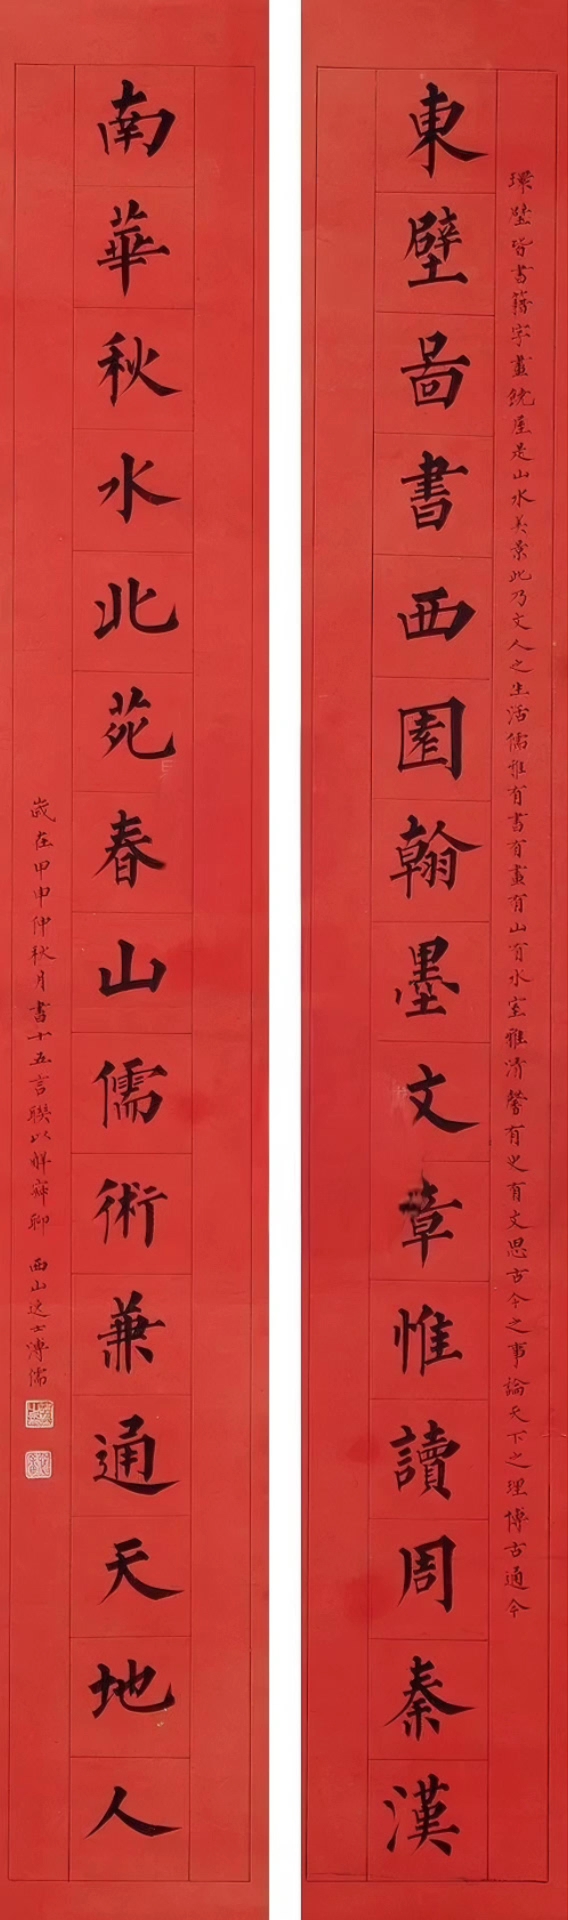 環壁皆書籍字畫繞屋是山水美景此乃文人之生活儒雅有書有畫有山有水室雅清馨有史有文思古今之事論天下之理博古通今
東壁啚書西園翰墨文章惟讀周秦漢
南華秋水北苑春山儒術兼通天地人
歲在甲申仲秋月書十五言聯以解寂聊 西山逸士溥儒